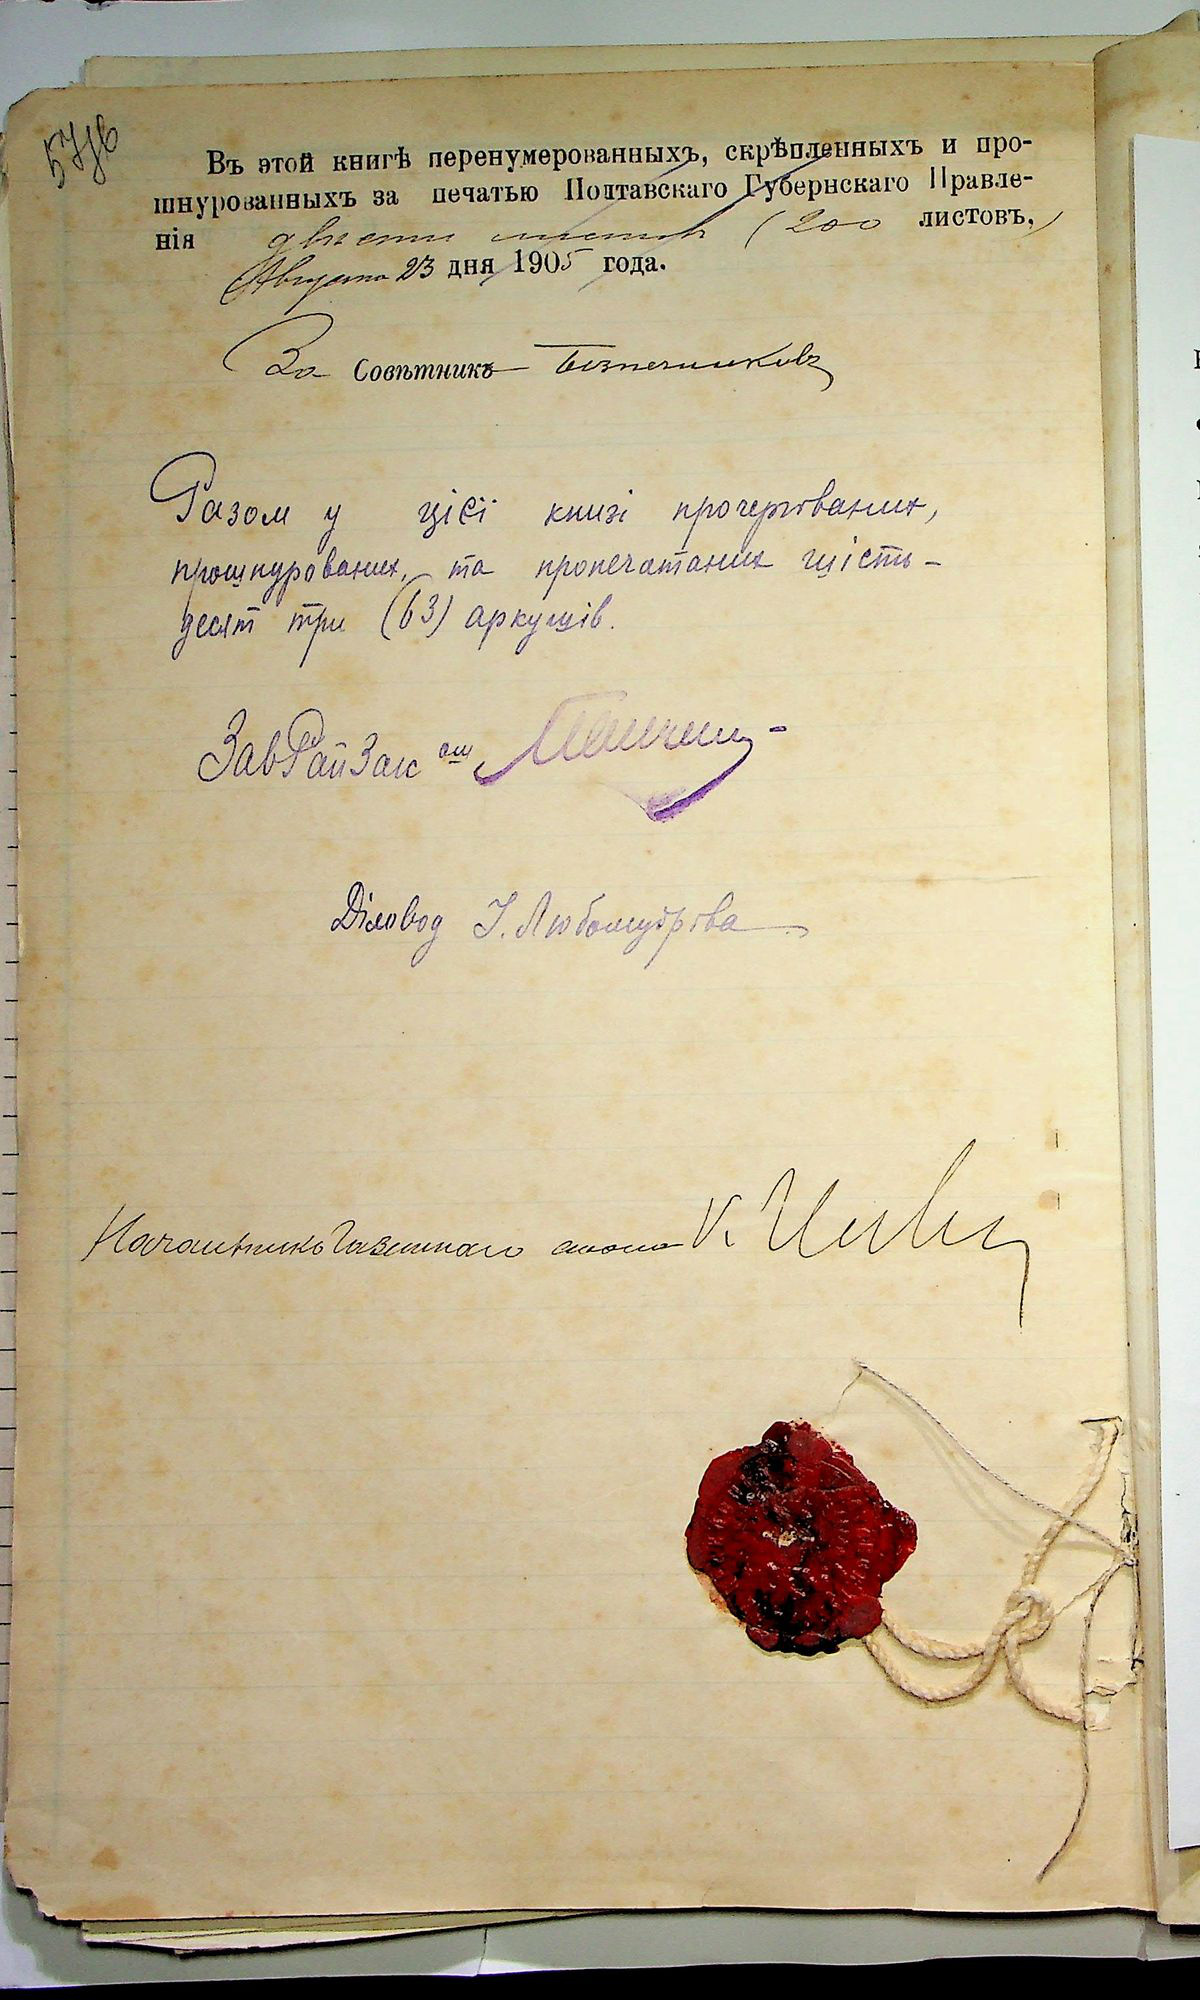 Въ этой книгѣ перенумерованныхъ, скрѣпленныхъ и про-
шнурованныхъ за печатью Полтавскаго Губернскаго Правле-
нія двѣсти листовъ (200 листовъ,)
Августа 23 дня 1905 года.
За Совѣтникъ
Разом у цієї книзі прочертованих,
прошнурованих, та пропечатаних шість-
десят три (63) аркушів.
ЗавРайЗаг
Діловод І. Любомудрова
Начальникъ стола К.